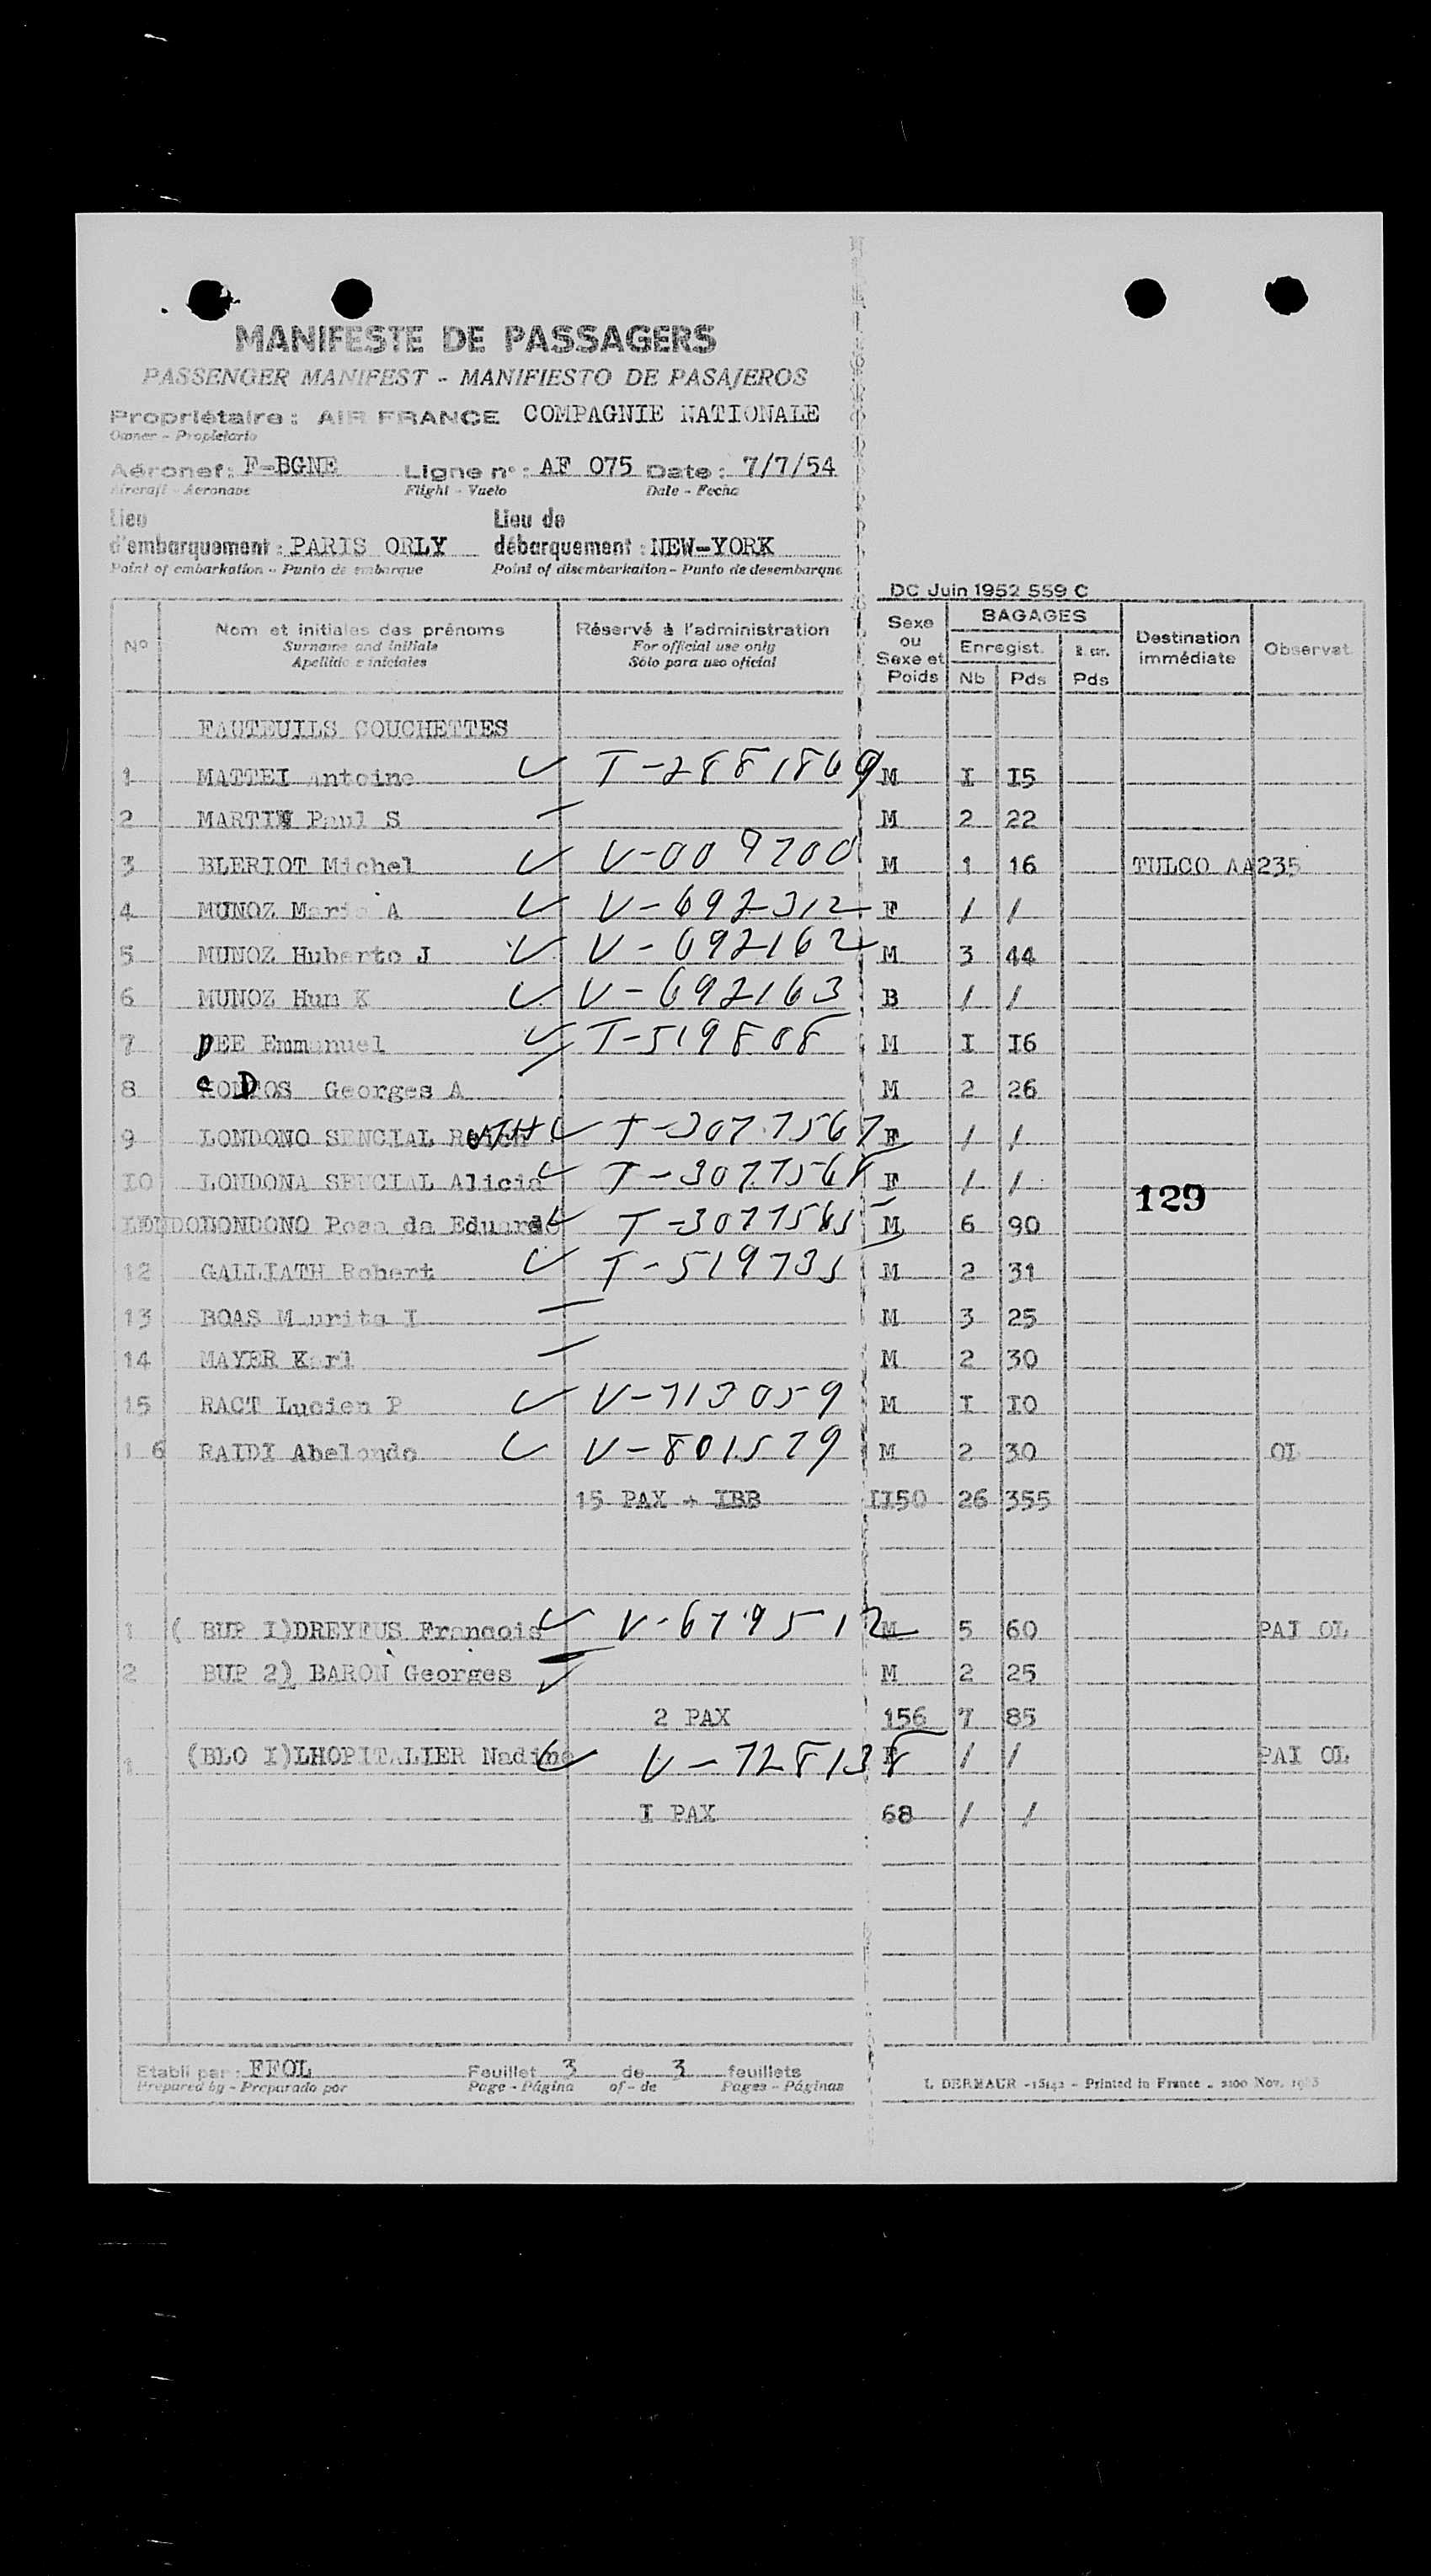 MANIFESTE DE PASSAGERS
PASSENGER MANIFEST - MANIFIESTO DE PASAJEROS
Propriétaire : AIR FRANCE COMPAGNIE NATIONALE
Owner - Propietario
Aéronef : F-BGNE Ligne n° : AF 075 Date : 7/7/54
Aircraft - Aeronave Flight - Vuelo Date - Fecha
Lieu d'embarquement : PARIS ORLY Lieu de débarquement : NEW-YORK
Point of embarkation - Punto de embarque Point of disembarkation - Punto de desembarque
DC Juin 1952 559 C
N° Nom et initiales des prénoms Réservé à l'administration Sexe ou Sexe et Poids BAGAGES Enregist. Nb Pds Pds Destination immédiate Observat.
Surname and initials For official use only
Apellido e iniciales Sólo para uso oficial
FAUTEUILS COUCHETTES
1 MATTEI Antoine T-2881869 M I I5
2 MARTIN Paul S M 2 22
3 BLERIOT Michel V-009700 M 1 16 TULCO AA235
4 MUNOZ Maria A V-692312 F / /
5 MUNOZ Huberto J V-692162 M 3 44
6 MUNOZ Hum K V-692163 B / /
7 DEE Emmanuel T-519808 M I I6
8 Georges A M 2 26
9 LONDONO T-3077567 F / /
IO LONDONA Alicia T-3077568 F / /
LONDONO Rosa da Eduardo T-3077565 M 6 90
12 GALLIATH Robert T-519735 M 2 31
13 BOAS M 3 25
14 MAYER Karl M 2 30
15 RACT Lucien P V-713059 M I IO
1 6 RAIDI Abelondo V-801579 M 2 30 OL
15 PAX + IBB II50 26 355
1 ( BUP I)DREYFUS Francois V-679512 M 5 60 PAI OL
2 BUP 2) BARON Georges M 2 25
2 PAX 156 7 85
1 (BLO I)LHOPITALIER Nadine V-728138 F / / PAI OL
I PAX 68 / /
129
Etabli par : FFOL Feuillet 3 de 3 feuillets
Prepared by - Preparado por Page - Página of - de Pages - Páginas
L. DERMAUR - 15142 - Printed in France - 2100 Nov.